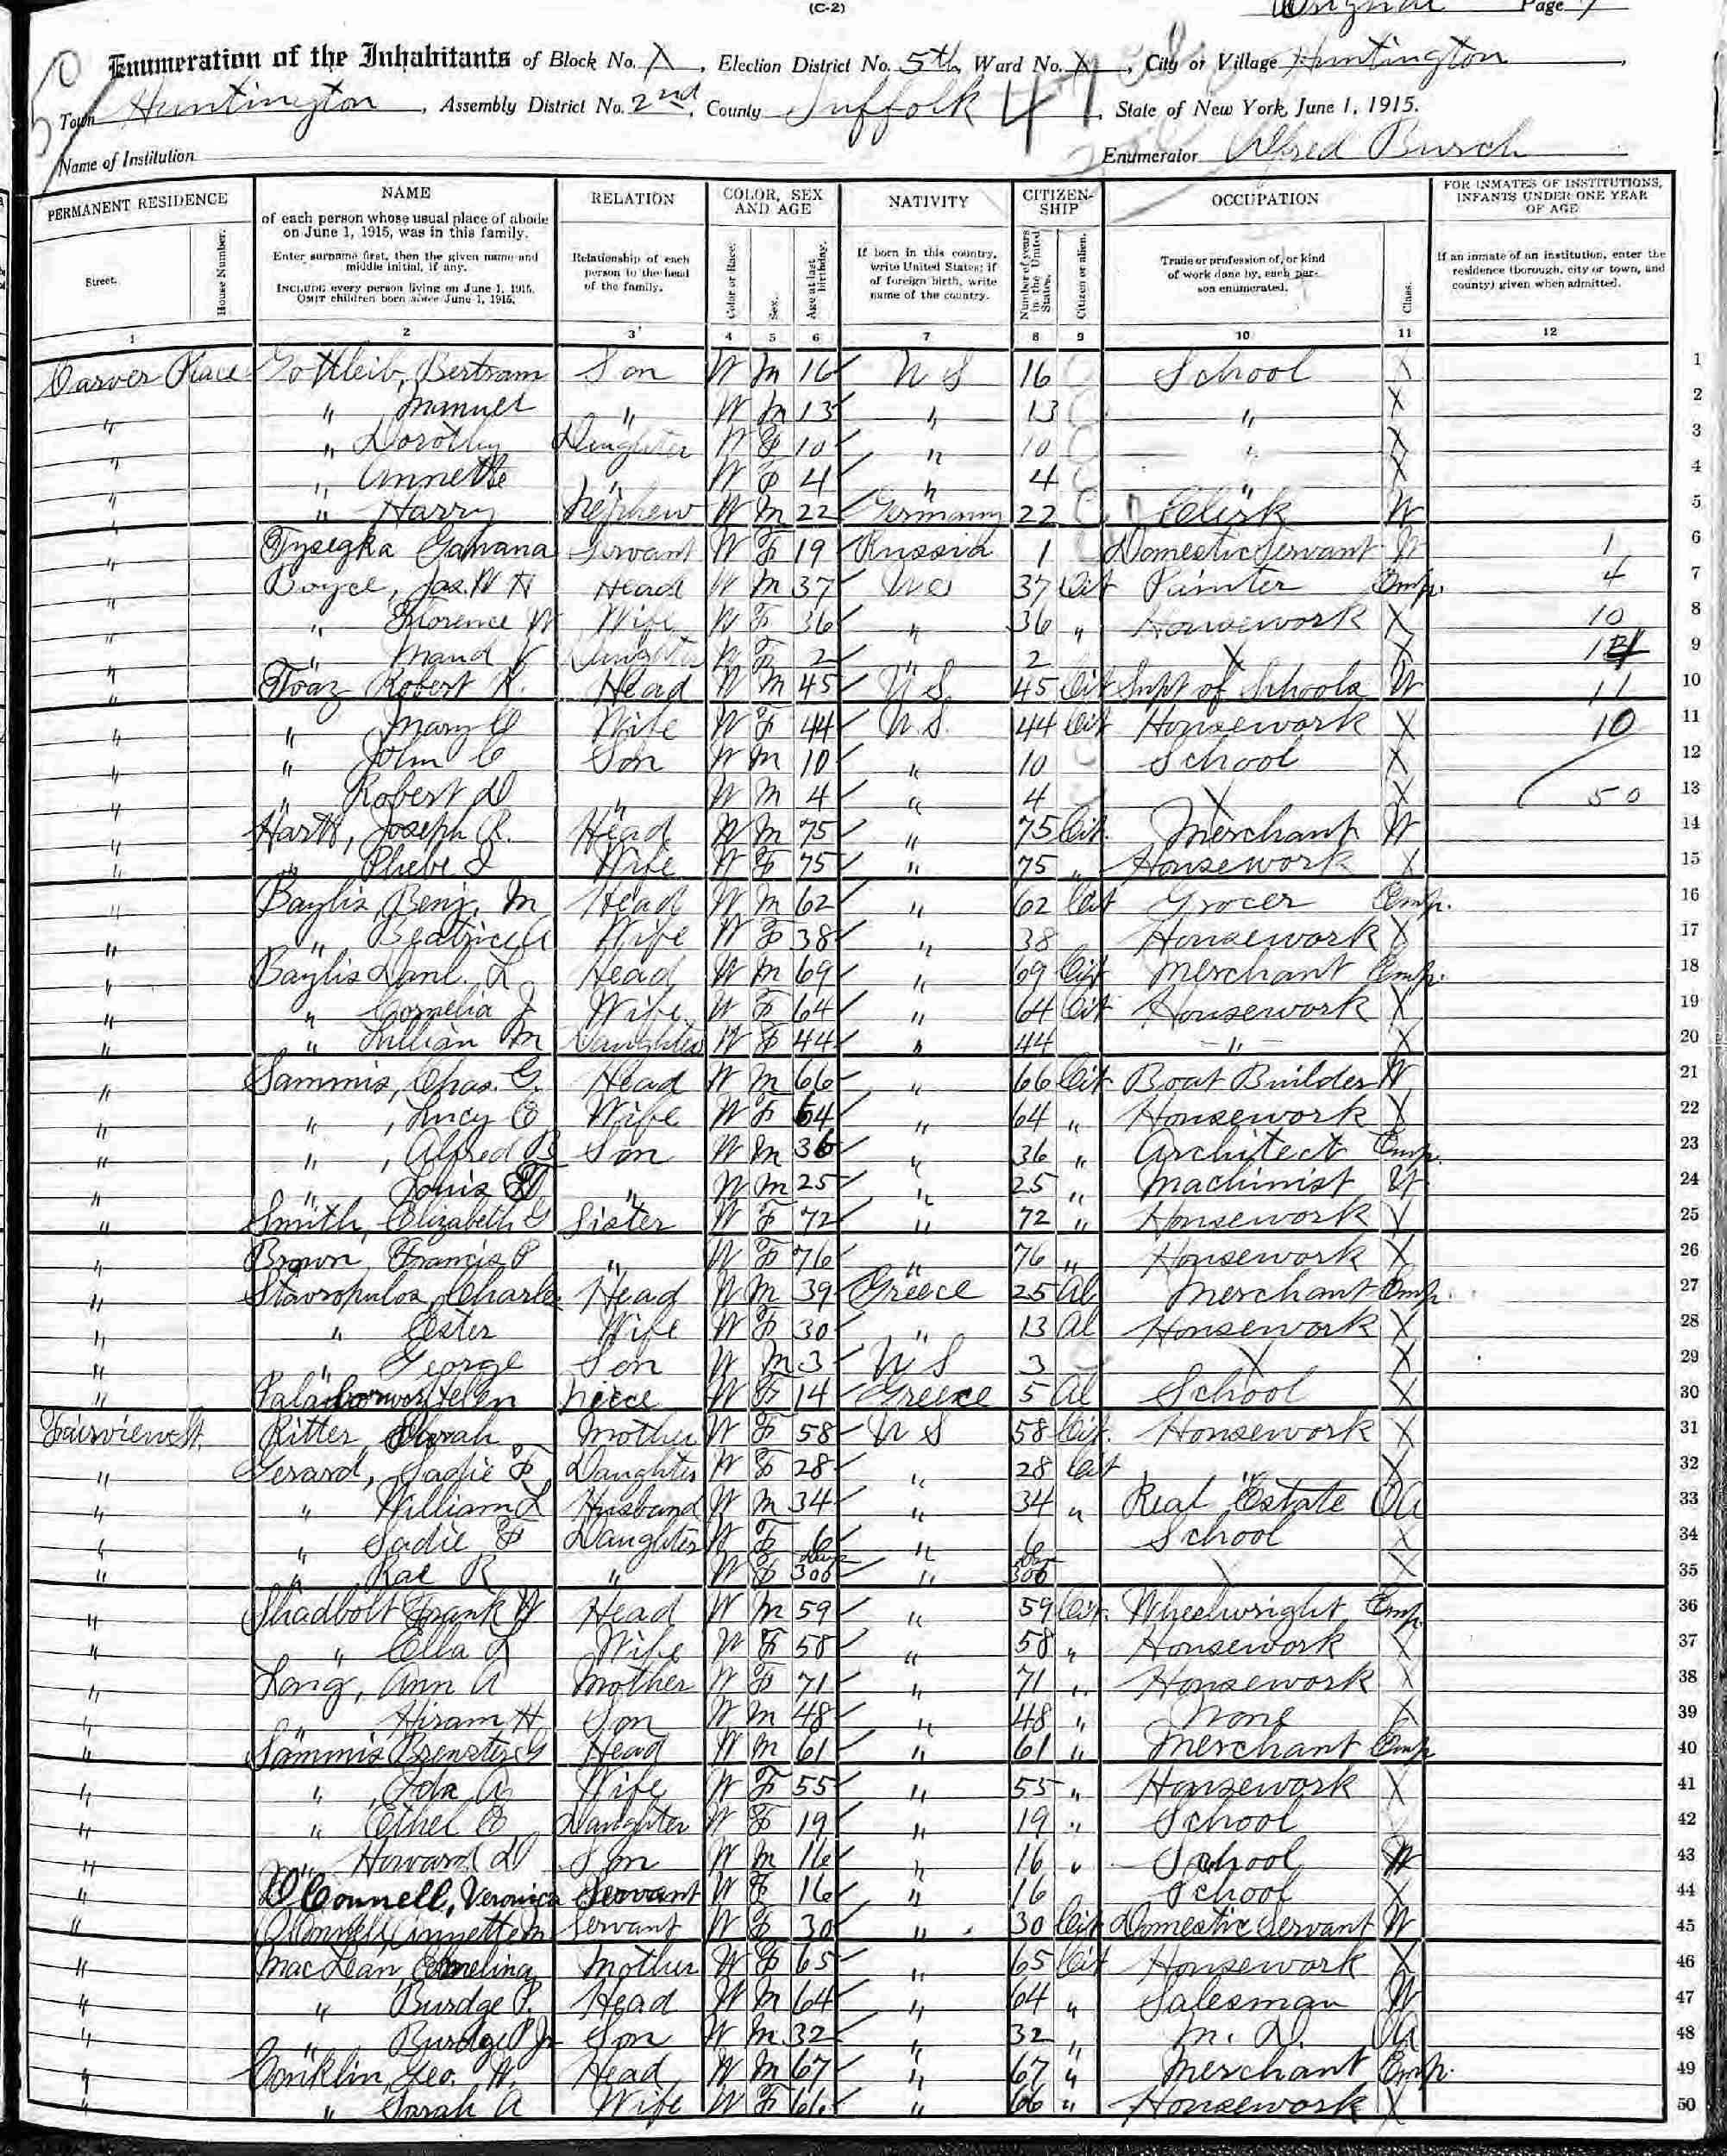 (C-2)
Original Page
Enumeration of the Inhabitants of Block No. X, Election District No. 5th, Ward No. X, City or Village Huntington,
Town Huntington, Assembly District No. 2nd, County Suffolk, State of New York, June 1, 1915.
Name of Institution Enumerator Alfred Burch
PERMANENT RESIDENCE NAME RELATION COLOR, SEX AND AGE NATIVITY CITIZEN-SHIP OCCUPATION FOR INMATES OF INSTITUTIONS, INFANTS UNDER ONE YEAR OF AGE
Street. House Number. of each person whose usual place of abode on June 1, 1915, was in this family. Enter surname first, then the given name and middle initial, if any. INCLUDE every person living on June 1, 1915. OMIT children born since June 1, 1915. Relationship of each person to the head of the family. Color or Race. Sex. Age at last birthday. If born in this country, write United States; if of foreign birth, write name of the country. Number of years in the United States. Citizen or alien. Trade or profession of, or kind of work done by, each person enumerated. Class. If an inmate of an institution, enter the residence (borough, city or town, and county) given when admitted.
1 2 3 4 5 6 7 8 9 10 11 12
Carver Place Gottleib, Bertram Son W M 16 U S 16 School X 1
" " Manuel " W M 13 " 13 " X 2
" " Dorothy Daughter W F 10 " 10 " X 3
" " Annette " W F 4 " 4 " X 4
" " Harry Nephew W M 22 Germany 22 Clerk W 5
" Servant W F 19 Russia 1 Domestic Servant W 1 6
" Boyce, Jas. W H Head W M 37 U S 37 Cit Painter Emp. 4 7
" " Florence W Wife W F 36 " 36 " Housework X 10 8
" " Maud V Daughter W F 2 " 2 X X 9
" Toaz Robert K. Head W M 45 U S. 45 Cit Supt of Schools W 11 10
" " Mary C Wife W F 44 U S. 44 Cit Housework X 10 11
" " John C Son W M 10 " 10 School X 12
" " Robert D " W M 4 " 4 X X 50 13
" Hartt, Joseph R. Head W M 75 " 75 Cit. Merchant W 14
" " Phebe J Wife W F 75 " 75 " Housework X 15
" Baylis, Benj. M Head W M 62 " 62 Cit Grocer Emp. 16
" " Beatrice A Wife W F 38 " 38 Housework X 17
" Baylis Danl. L Head W M 69 " 69 Cit Merchant Emp. 18
" " Cornelia J Wife W F 64 " 64 Cit Housework X 19
" " Lillian M Daughter W F 44 " 44 " X 20
" Sammis, Chas. G. Head W M 66 " 66 Cit Boat Builder W 21
" ", Lucy E Wife W F 64 " 64 " Housework X 22
" ", Alfred B Son W M 36 " 36 " Architect Emp. 23
" " Louis " W M 25 " 25 " Machinist W 24
" Smith, Elizabeth G Sister W F 72 " 72 " Housework X 25
" Brown, Francis P " W F 76 " 76 " Housework X 26
" Stavropulos, Charles Head W M 39 Greece 25 Al Merchant Emp. 27
" " Ester Wife W F 30 " 13 Al Housework X 28
" " George Son W M 3 U S 3 X X 29
" Helen Niece W F 14 Greece 5 Al School X 30
Fairview St. Ritter Sarah Mother W F 58 U S 58 Cit. Housework X 31
" Gerard, Sadie F Daughter W F 28 " 28 Cit " X 32
" " William L Husband W M 34 " 34 " Real Estate OA 33
" " Sadie F Daughter W F 6 " 6 School X 34
" " Rae R " W F 306 days " 306 days X 35
" Shadbolt Frank W Head W M 59 " 59 Cit. Wheelwright Emp 36
" " Ella L Wife W F 58 " 58 " Housework X 37
" Long, Ann A Mother W F 71 " 71 " Housework X 38
" " Hiram H Son W M 48 " 48 " None X 39
" Sammis Brewster G Head W M 61 " 61 " Merchant Emp 40
" ", Ada A Wife W F 55 " 55 " Housework X 41
" " Ethel E Daughter W F 19 " 19 " School 42
" " Howard D Son W M 16 " 16 " School 43
" O'Connell, Veronica Servant W F 16 " 16 School X 44
" O'Connell, Annette M Servant W F 30 " 30 Cit Domestic Servant W 45
" MacLean, Emelina Mother W F 65 " 65 Cit Housework X 46
" " Burdge P. Head W M 64 " 64 " Salesman W 47
" " Burdge P Jr Son W M 32 " 32 " M. D. OA 48
" Conklin, Geo. W. Head W M 67 " 67 " Merchant Emp. 49
" " Sarah A Wife W F 66 " 66 " Housework X 50